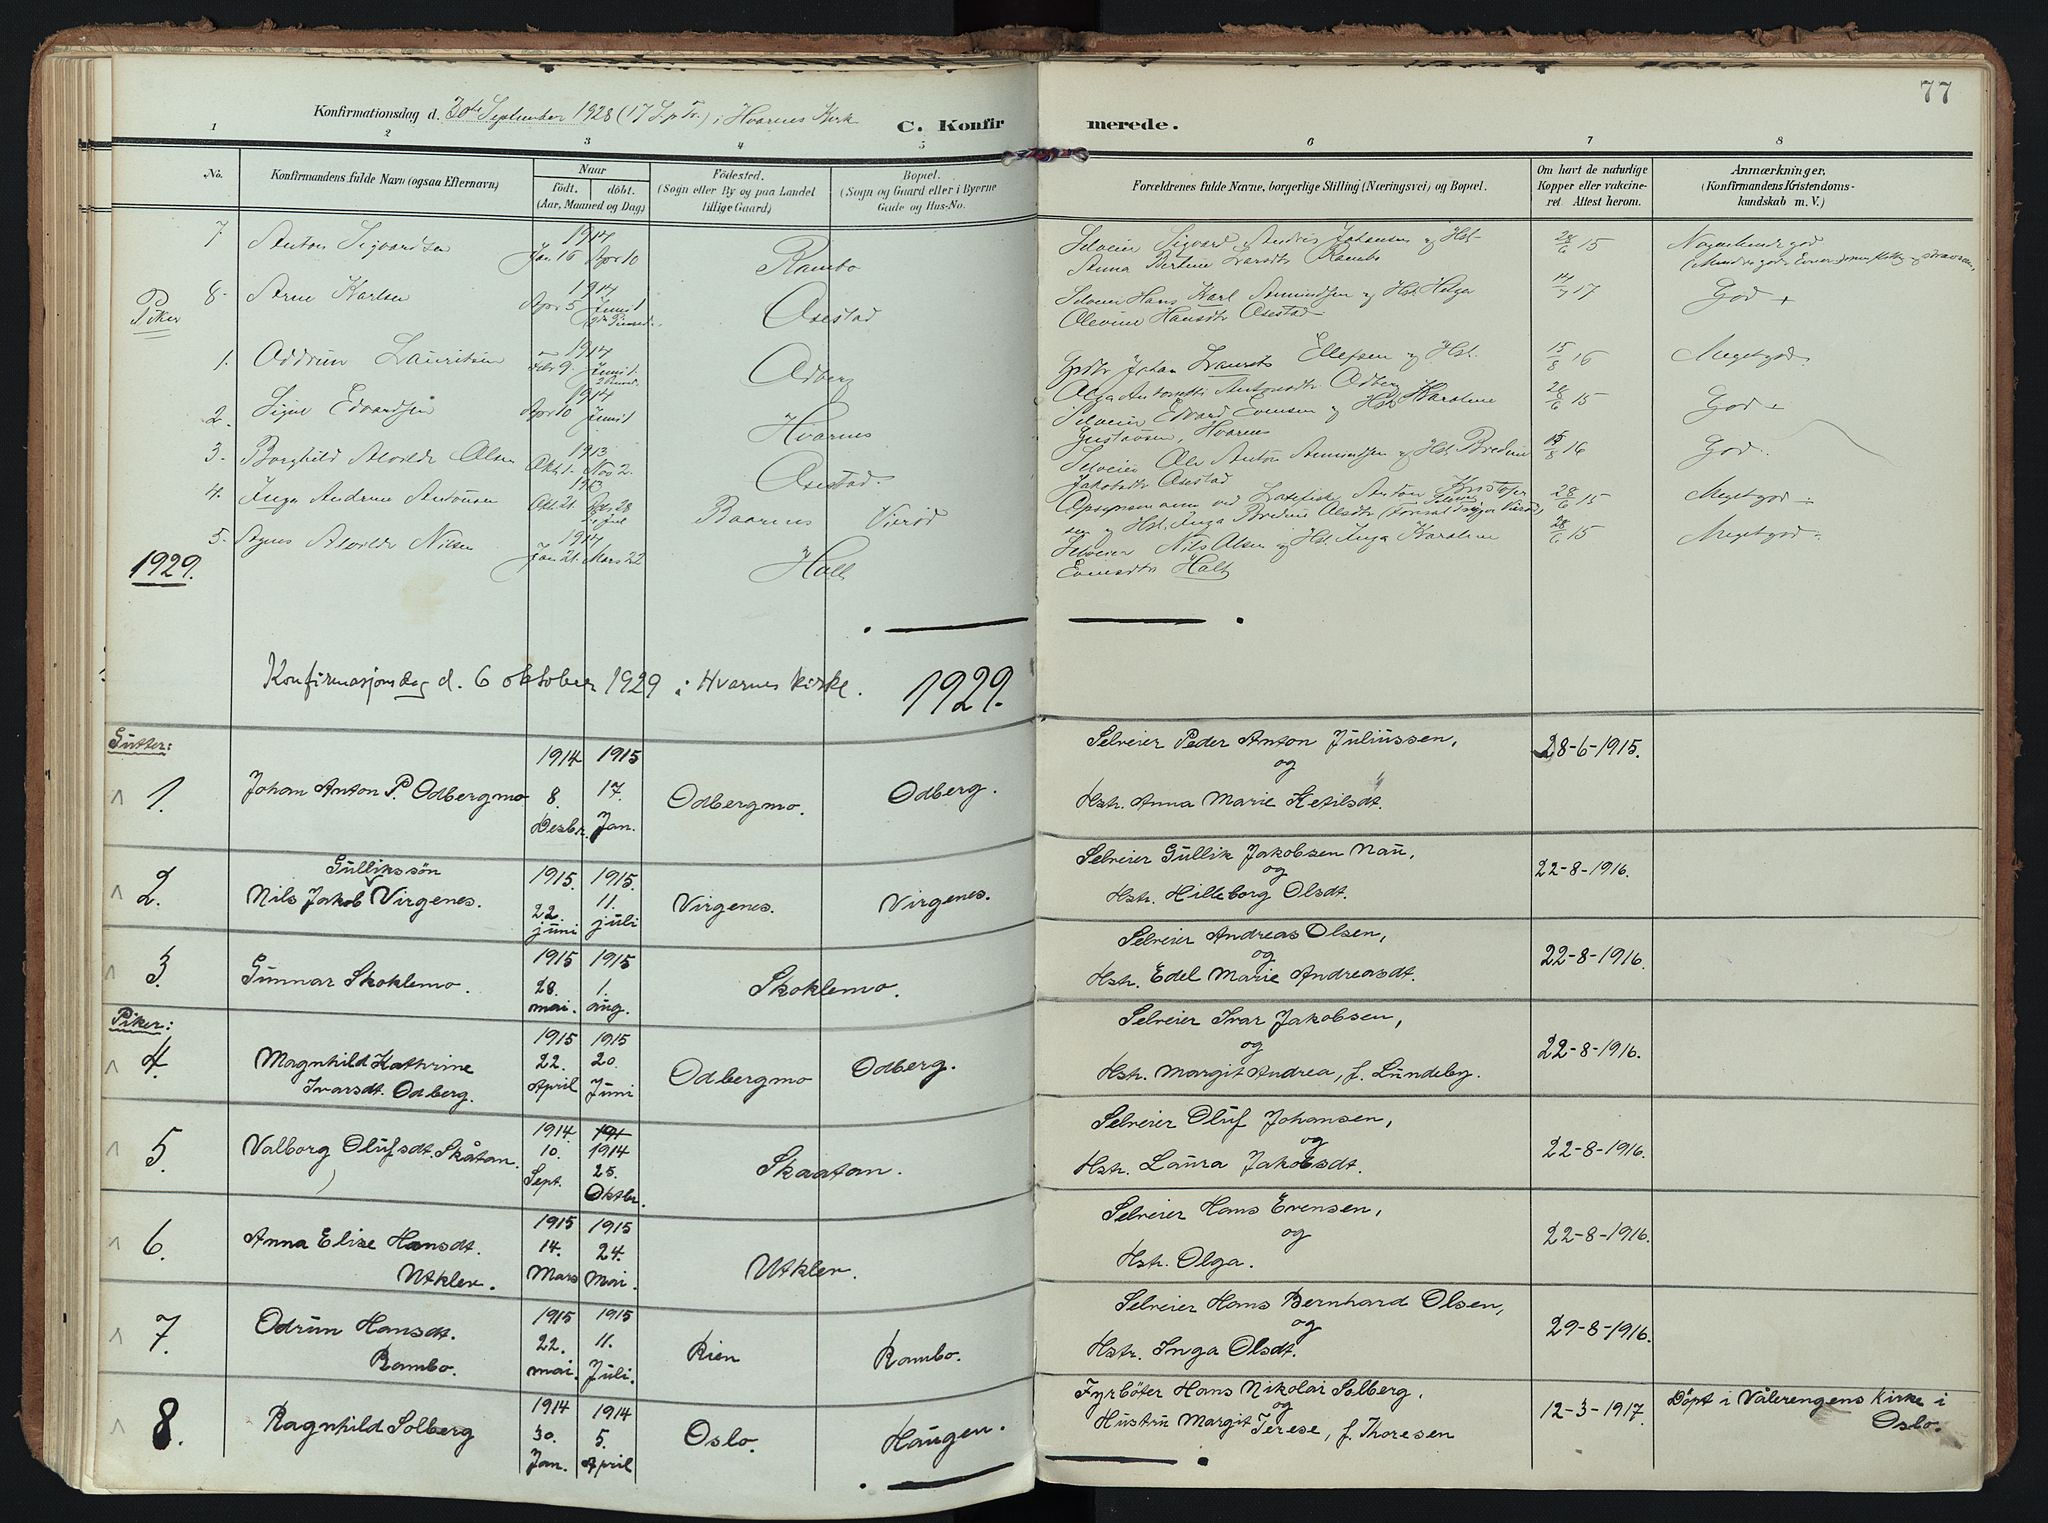 77
Konfirmationsdag d. 30te September 1928 (17 S. p. Tr.) i Hvarnes Kirk
C. Konfirmerede.
1 2 3 4 5 6 7 8
No.
Konfirmandens fulde Navn (ogsaa Efternavn)
Naar
født. døbt.
(Aar, Maaned og Dag)
Fødested.
(Sogn eller By og paa Landet
tillige Gaard)
Bopæl.
(Sogn og Gaard eller i Byerne
Gade og Hus-No.
Forældrenes fulde Navne, borgerlige Stilling (Næringsvei) og Bopæl.
Om havt de naturlige
Kopper eller vaccine-
ret. Attest herom.
Anmærkninger,
(Konfirmandens Kristendoms-
kundskab m. V.)
7 Anton Sigvardsen 1914 Jan 16 Apr 10 Rambo
Selveier Sigvard Andres Johansen og Hst.
Anna Bertine Larsdtr Rambo
28/6 15
8. Arne Karlsen 1914 Apr 5 Juni 1 Aasestad
Selveier Hans Karl Amundsen og Hst. Helga
Olevine Hansdtr Aasestad
17 God +
Piker
1. Oddrun Lauritsen 1914 Feb 9. Juni 1. Odberg
Gpbr Johan Laurits Ellefsen og Hst.
Olga Antonette Antonsdtr Odberg
15/8 16 Megetgod
2. Signe Edvardsen 1914 Apr 10 Juni 1 Hvarnes
Selveier Edvard Evensen og Hst. Karoline
Gustavsen, Hvarnes
28/6 15 God +
3. Borghild Alvilde Olsen 1913 Okt 1. Nov 2. Aasestad.
Selveier Ole Anton Amundsen og Hst. Bredine
Jakobsdtr Aasestad
15/8 16 God.
4. Inga Andrea Antonsen 1913 Okt 21. Baarnes Vierød
Opsynsmann ved Laxefiske Anton Kristofer
og Hst. Inga Bredine Olsdtr
28/6 15 Megetgod
5. Agnes Alvilde Nilsen 1914 Jan 21. Mars 22 Holt
Selveier Nils Olsen og Hst. Inga Karoline
Evensdtr Holt
28/6 15 Megetgod
1929.
Konfirmasjonsdag d. 6 oktober 1929 i Hvarnes kirke. 1929.
Gutter:
1. Johan Anton P. Odbergmo 1914 8. Desbr. 1915 17. Jan. Odbergmo. Odberg.
Selveier Peder Anton Juliussen,
og
Hstr. Anna Marie Ketilsdt.
28-6-1915.
2. Nils Jakob Gullikssøn Virgenes. 1915. 22. juni 1915. 11. juli Virgenes. Virgenes.
Selveier Gullik Jakobsen Nau,
og
Hstr. Hilleborg Olsdt.
22-8-1916.
3. Gunnar Skoklemo. 1915 28. mai. 1915 1. aug. Skoklemo.
Selveier Andreas Olsen,
og
Hstr. Edel Marie Andreasdt.
22-8-1916.
Piker:
4. Magnhild Kathrine
Ivarsdt. Odberg. 1915 22. April 1915 20. Juni Odbergmo Odberg.
Selveier Ivar Jakobsen,
og
Hstr. Margit Andrea, f. Lundeby.
22-8-1916.
5. Valborg Olufsdt. Skåtan. 1914. 10. Sept. 191 1914 25. Oktbr. Skaatan.
Selveier Oluf Johansen,
og
Hstr. Laura Jakobsdt.
22-8-1916.
6. Anna Elise Hansdt.
Utklev. 1915 14. Mars 1915 24. Mai. Utklev.
Selveier Hans Evensen,
og
Hstr. Olga.
22-8-1916.
7. Odrun Hansdt.
Rambo. 1915 22. mai. 1915 11. Juli. Rien Rambo.
Selveier Hans Bernhard Olsen,
og
Hstr. Inga Olsdt.
29-8-1916.
8. Ragnhild Solberg 1914 30. Jan. 1914 5. April Oslo. Haugen.
Fyrbøter Hans Nikolai Solberg.
og
Hustru Margit Terese, f. Thoresen
12-3-1917.
Døpt i Vålerengens kirke i
Oslo.